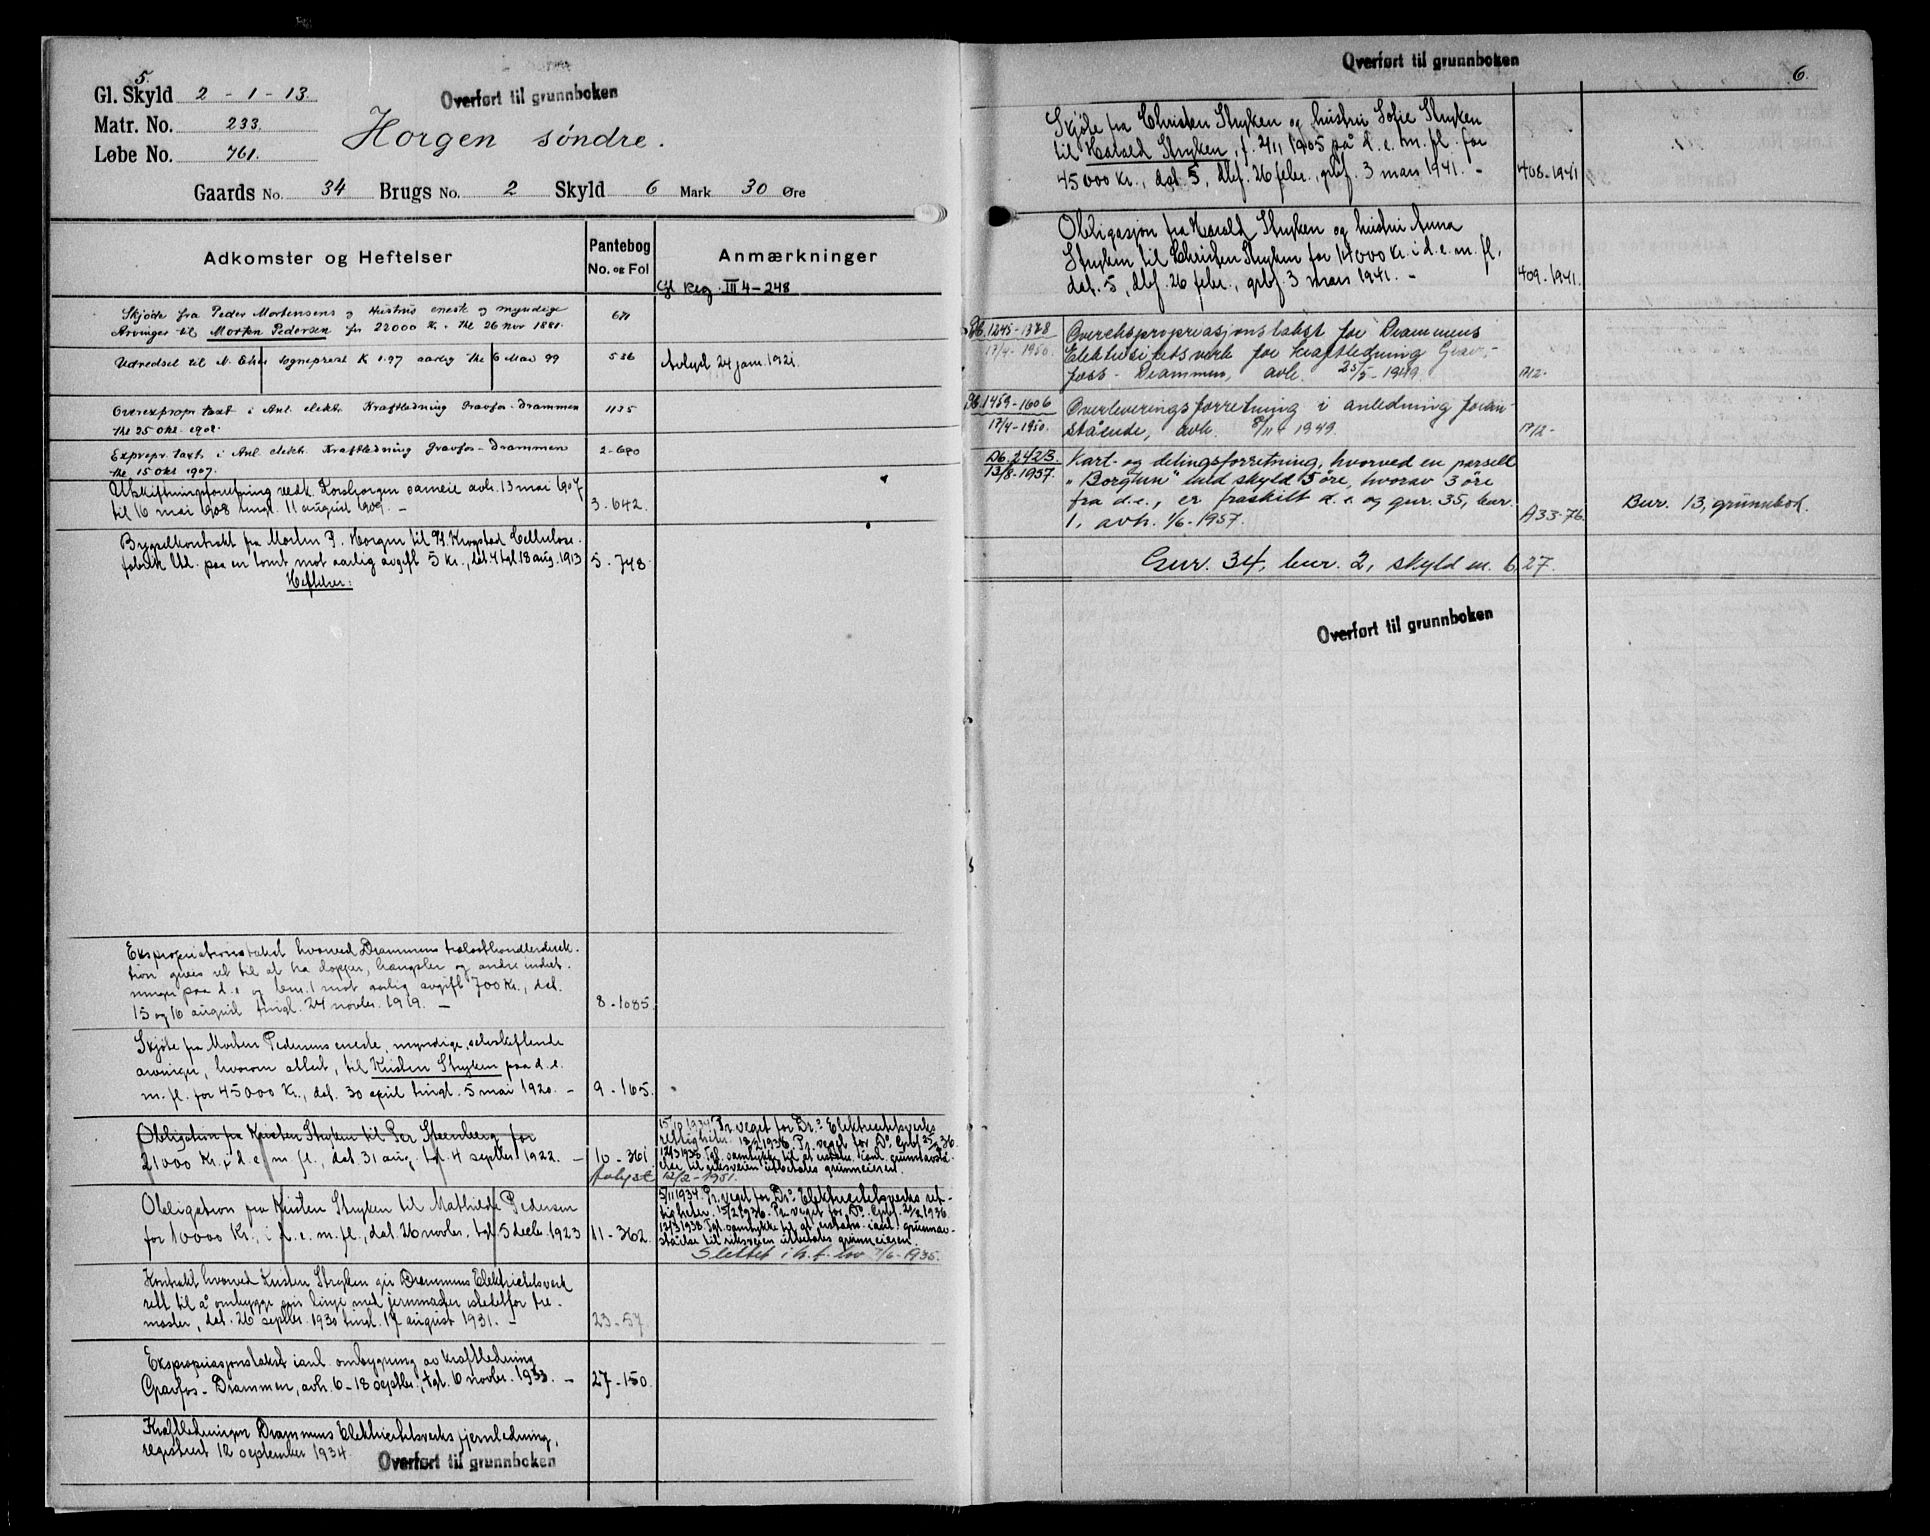 5.
Gl. Skyld 2 - 1 - 13.
Overført til grunnboken
Matr. No. 233.
Horgen søndre.
Løbe No. 761.
Gaards No. 34 Brugs No. 2 Skyld 6 Mark 30 Øre
Adkomster og Heftelser
Pantebog
No. og Fol
Anmærkninger
Gl Reg. III 4-248
Skjøde fra Peder Mortensens og Hustrus eneste og myndige
Arvinger til Morten Pedersen for 22000 Kr. thl 26 nov 1881.
671
Udredsel til N. Eker sogneprest K 1.97 aarlig thl 6 Mai 99
536
Avlyst 24 jan. 1921.
Overexpropr. taxt i Anl. elektr. Kraftledning Gravfos-Drammen
thl 25 Okt. 1902.
1135
Expropr. taxt. i Anl. elektr. Kraftledning Gravfos-Drammen
thl. 15 Okt 1907.
2-680
Utskiftningsforretning vedk. Korshorgen sameie avh. 13 mai 1907
til 16 mai 1908 tingl. 11 august 1908. -
3-642.
Bygselkontrakt fra Morten P. Horgen til Krogstad Cellulose-
fabrik Ltd. paa en tomt mot aarlig avgift 5 Kr., dat. 4 tgl. 18 aug. 1913
5-748
Heftelser:
Ekspropriationstakst hvorved Drammens trælasthandlerdirek-
tion gives ret til at ha dopper, hængsler og andre indret-
ninger paa d.e og bnr. 1 mot aarlig avgift 700 Kr., dat.
15 og 16 august tingl. 24 novbr. 1919. -
8-1085
Skjøte fra Morten Pedersens eneste, myndige, selvskiftende
arvinger, hvorom attest, til Kristen Stryken paa d.e.
m.fl. for 45000 Kr., dat. 30 april tingl. 5 mai 1920. -
9-165.
Obligation fra Kristen Stryken til Per Steenberg for
21000 Kr. i d.e m. fl., dat. 31 aug. tgl. 4 septbr. 1922. -
10-361
Avlyst 12/2-1951.
15/10 1934 Pr. veget for Dr.s Elektricitetsverks
rettigheter. 18/2 1936 Pr. veget for Do. Gpbf 25/2 36.
12/3 1938 Tgl. samtykke til at erstatn. i anl. grunnavstå-
else til riksveien utbetales grunneieren.
Obligation fra Kristen Stryken til Mathilde Pedersen
for 10000 Kr., i d.e.m.fl., dat. 26 novbr. tgl. 5 decbr. 1923
11-362.
5/11 1934. Pr. veget for Dr.s Elektricitetsverks ret-
tigheter. 15/2 1936. Pr. veget for Do. Gpbf. 25/2 1936.
12/3 1938. Tgl. samtykke til at erstatn. i anl. grunnav-
ståelse til riksveien utbetales grunneieren.
Slettet i h.t. lov 7/6-1935.
Kontrakt hvorved Kristen Stryken gir Drammens Elektricitetsverk
rett til å ombygge sin linje med jernmaster istedetfor tre-
master, dat. 26 septbr. 1930 tingl. 17 august 1931. -
23-57
Ekspropriasjonstakst i anl. ombygning av kraftledning
Gravfos-Drammen, avh. 6-18 septbr., tgl. 6 novbr. 1933. -
27-150.
Kraftledningen Drammens Elektricitetsverks fjernledning,
registrert 12 september 1934.
Overført til grunnboken
Overført til grunnboken
6.
Skjøte fra Christen Stryken og hustru Sofie Stryken
til Harald Stryken, f. 2/11 1905 på d.e.m.fl. for
45000 Kr., dat. 5, dbf. 26 febr., gpbf. 3 mars 1941. -
408-1941
Obligasjon fra Harald Stryken og hustru Anna
Stryken til Christen Stryken for 14000 Kr. i d.e.m.fl.,
dat. 5, dbf. 26 febr., gpbf. 3 mars 1941. -
409-1941.
Db. 1245-1378
17/4-1950.
Overekspropriasjonstakst for Drammens
Elektrisitetsverk for kraftledning Grav-
foss - Drammen, avh. 25/5-1949.
1712-
Db. 1459-1606
17/4-1950.
Overleveringsforretning i anledning foran-
stående, avh. 8/11 1949.
1712-
Db. 2423
13/8-1957.
Kart- og delingsforretning, hvorved en parsell
"Borgtun" med skyld 5 øre, hvorav 3 øre
fra d.e., er fraskilt d.e. og gnr. 35, bnr.
1, avh. 1/6-1957.
A33-76
Bnr. 13, grunnbok.
Gnr. 34, bnr. 2, skyld m. 6,27.
Overført til grunnboken